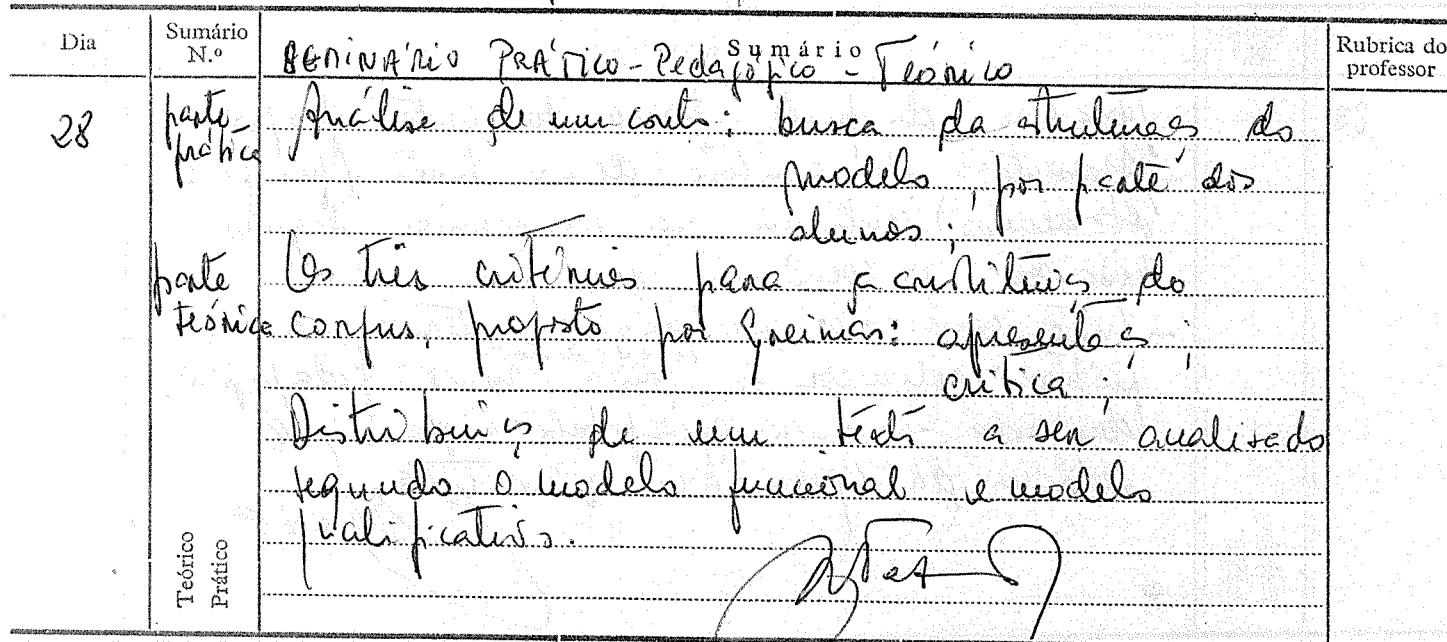 Dia
Sumário N.º
Sumário
Rubrica do professor
SEMINÁRIO PRÁTICO - Pedagógico - Teórico
28
parte prática
Análise de um conto: busca da estruturação do
modelo, por parte dos
alunos;
parte Teórica
Os três critérios para a constituição do
corpus, proposto por Greimas: apresentação;
crítica;
Distribuição de um texto a ser analisado
segundo o modelo funcional e modelo
qualificativo.
Teórico
Prático